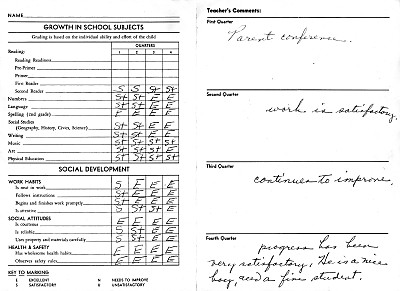 NAME
GROWTH IN SCHOOL SUBJECTS
Grading is based on the individual ability and effort of the child
QUARTERS
1 2 3 4
Reading:
Reading Readiness
Pre-Primer
Primer
First Reader
Second Reader S S St St
Numbers St St E E
Language St St E E
Spelling (2nd grade) F E E E
Social Studies
(Geography, History, Civics, Science) St St E E
Writing St St E E
Music St St St St
Art St St E E
Physical Education St St St St
SOCIAL DEVELOPMENT
WORK HABITS
Is neat in work S E E E
Follows instructions St E E E
Begins and finishes work promptly St St E E
Is attentive S St St E
SOCIAL ATTITUDES
Is courteous E E E E
Is reliable S St E E
Uses property and materials carefully S St E E
HEALTH & SAFETY
Has wholesome health habits E E E E
Observes safety rules E E E E
KEY TO MARKING
E EXCELLENT N NEEDS TO IMPROVE
S SATISFACTORY U UNSATISFACTORY
Teacher's Comments:
First Quarter
Parent conference.
Second Quarter
work is satisfactory.
Third Quarter
continues to improve.
Fourth Quarter
progress has been
very satisfactory. He is a nice
boy, and a fine student.